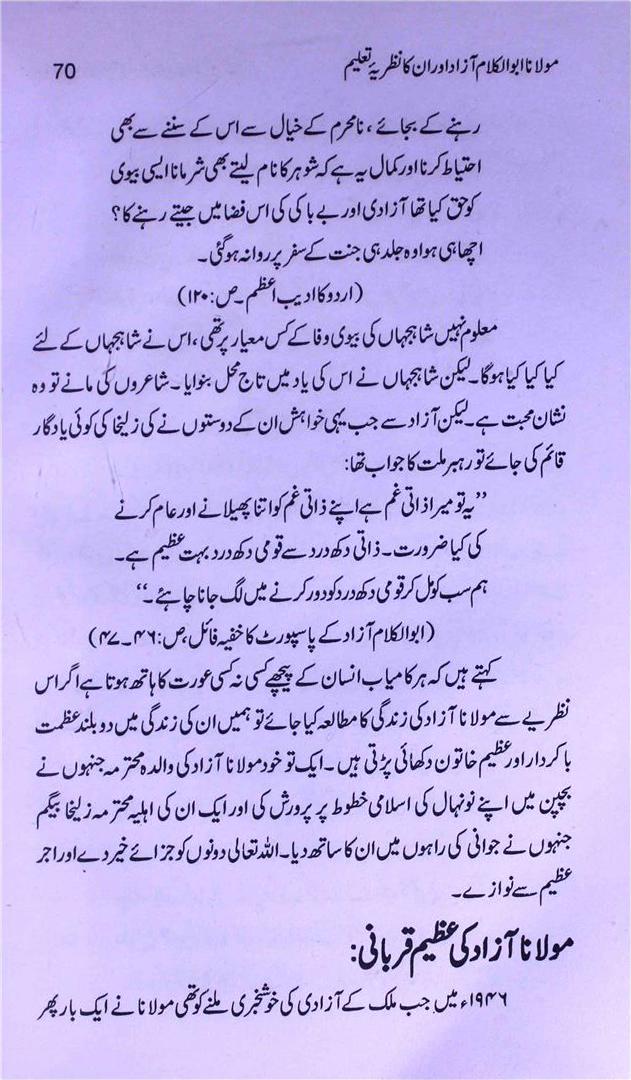 مولانا ابوالکلام آزاد اور ان کا نظریۂ تعلیم
70
رہنے کے بجائے، نامحرم کے خیال سے اس کے سننے سے بھی
احتیاط کرنا اور کمال یہ ہے کہ شوہر کا نام لیتے بھی شرمانا ایسی بیوی
کو حق کیا تھا آزادی اور بے باکی کی اس فضا میں جیتے رہنے کا؟
اچھا ہی ہوا وہ جلد ہی جنت کے سفر پر روانہ ہوگئی۔
(اردو کا ادیب اعظم۔ص:۱۲۰)
معلوم نہیں شاہجہاں کی بیوی وفا کے کس معیار پر تھی، اس نے شاہجہاں کے لئے
کیا کیا کیا ہوگا۔ لیکن شاہجہاں نے اس کی یاد میں تاج محل بنوایا۔ شاعروں کی مانے تو وہ
نشان محبت ہے۔ لیکن آزاد سے جب یہی خواہش ان کے دوستوں نے کی زلیخا کی کوئی یادگار
قائم کی جائے تو رہبر ملت کا جواب تھا:
”یہ تو میرا ذاتی غم ہے اپنے ذاتی غم کو اتنا پھیلانے اور عام کرنے
کی کیا ضرورت۔ ذاتی دکھ درد سے قومی دکھ درد بہت عظیم ہے۔
ہم سب کو مل کر قومی دکھ درد کو دور کرنے میں لگ جانا چاہئے۔“
(ابوالکلام آزاد کے پاسپورٹ کا خفیہ فائل،ص:۴۶۔۴۷)
کہتے ہیں کہ ہر کامیاب انسان کے پیچھے کسی نہ کسی عورت کا ہاتھ ہوتا ہے اگر اس
نظریے سے مولانا آزاد کی زندگی کا مطالعہ کیا جائے تو ہمیں ان کی زندگی میں دو بلند عظمت
باکردار اور عظیم خاتون دکھائی پڑتی ہیں۔ ایک تو خود مولانا آزاد کی والدہ محترمہ جنہوں نے
بچپن میں اپنے نونہال کی اسلامی خطوط پر پرورش کی اور ایک ان کی اہلیہ محترمہ زلیخا بیگم
جنہوں نے جوانی کی راہوں میں ان کا ساتھ دیا۔ اللہ تعالیٰ دونوں کو جزائے خیر دے اور اجر
عظیم سے نوازے۔
مولانا آزاد کی عظیم قربانی:
۱۹۴۶ء میں جب ملک کے آزادی کی خوشخبری ملنے کو تھی مولانا نے ایک بار پھر